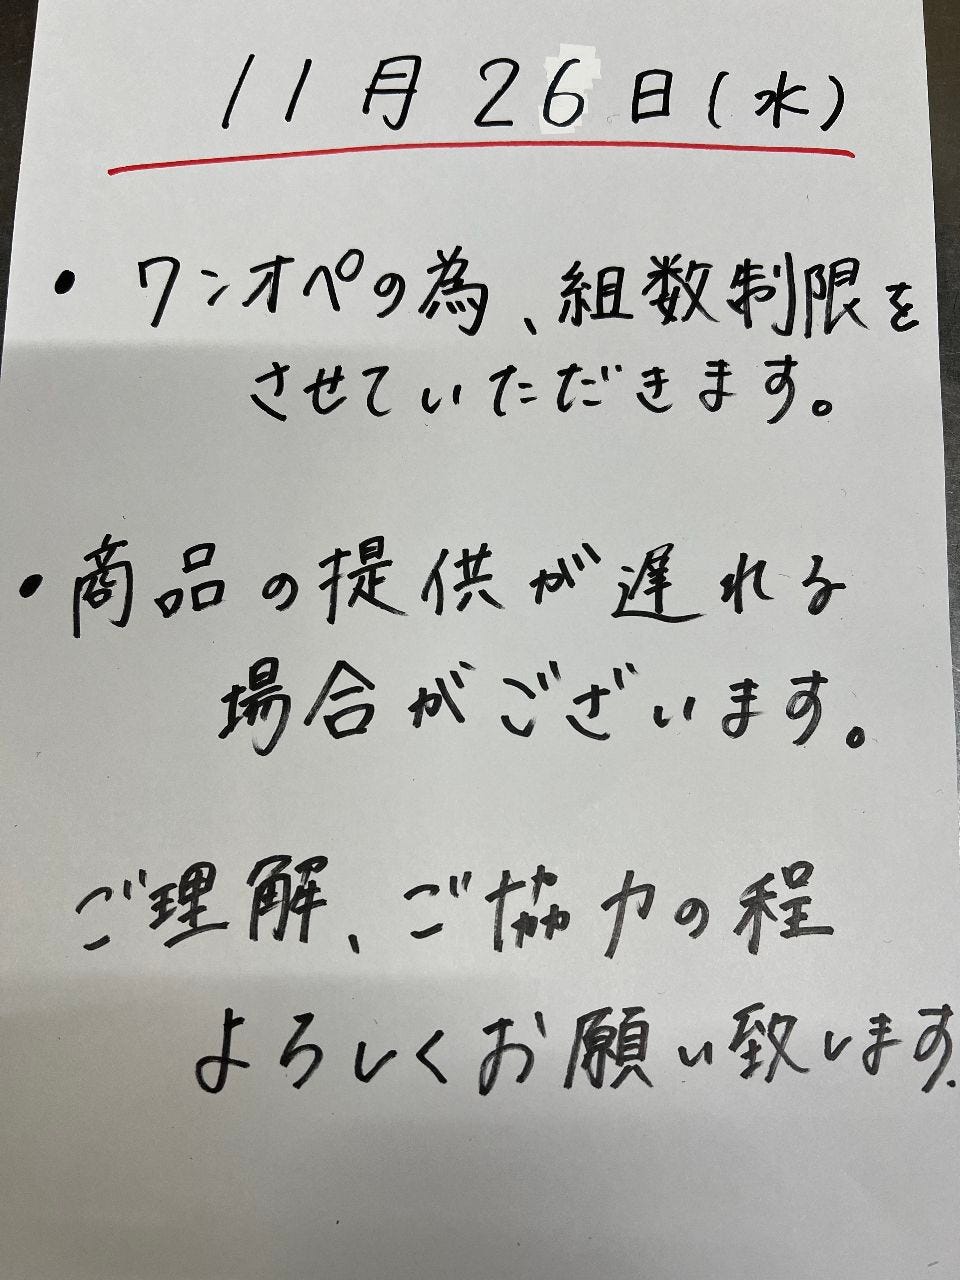 11月26日(水)
・ワンオペの為、組数制限を
させていただきます。
・商品の提供が遅れる
場合がございます。
ご理解、ご協力の程
よろしくお願い致します.